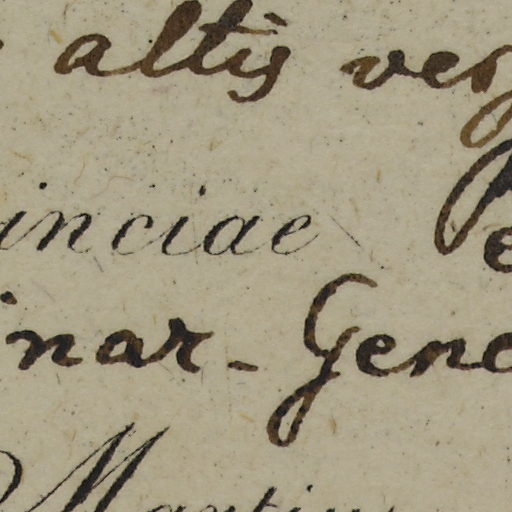 altis ver
inciae
inar- Gene
Martius